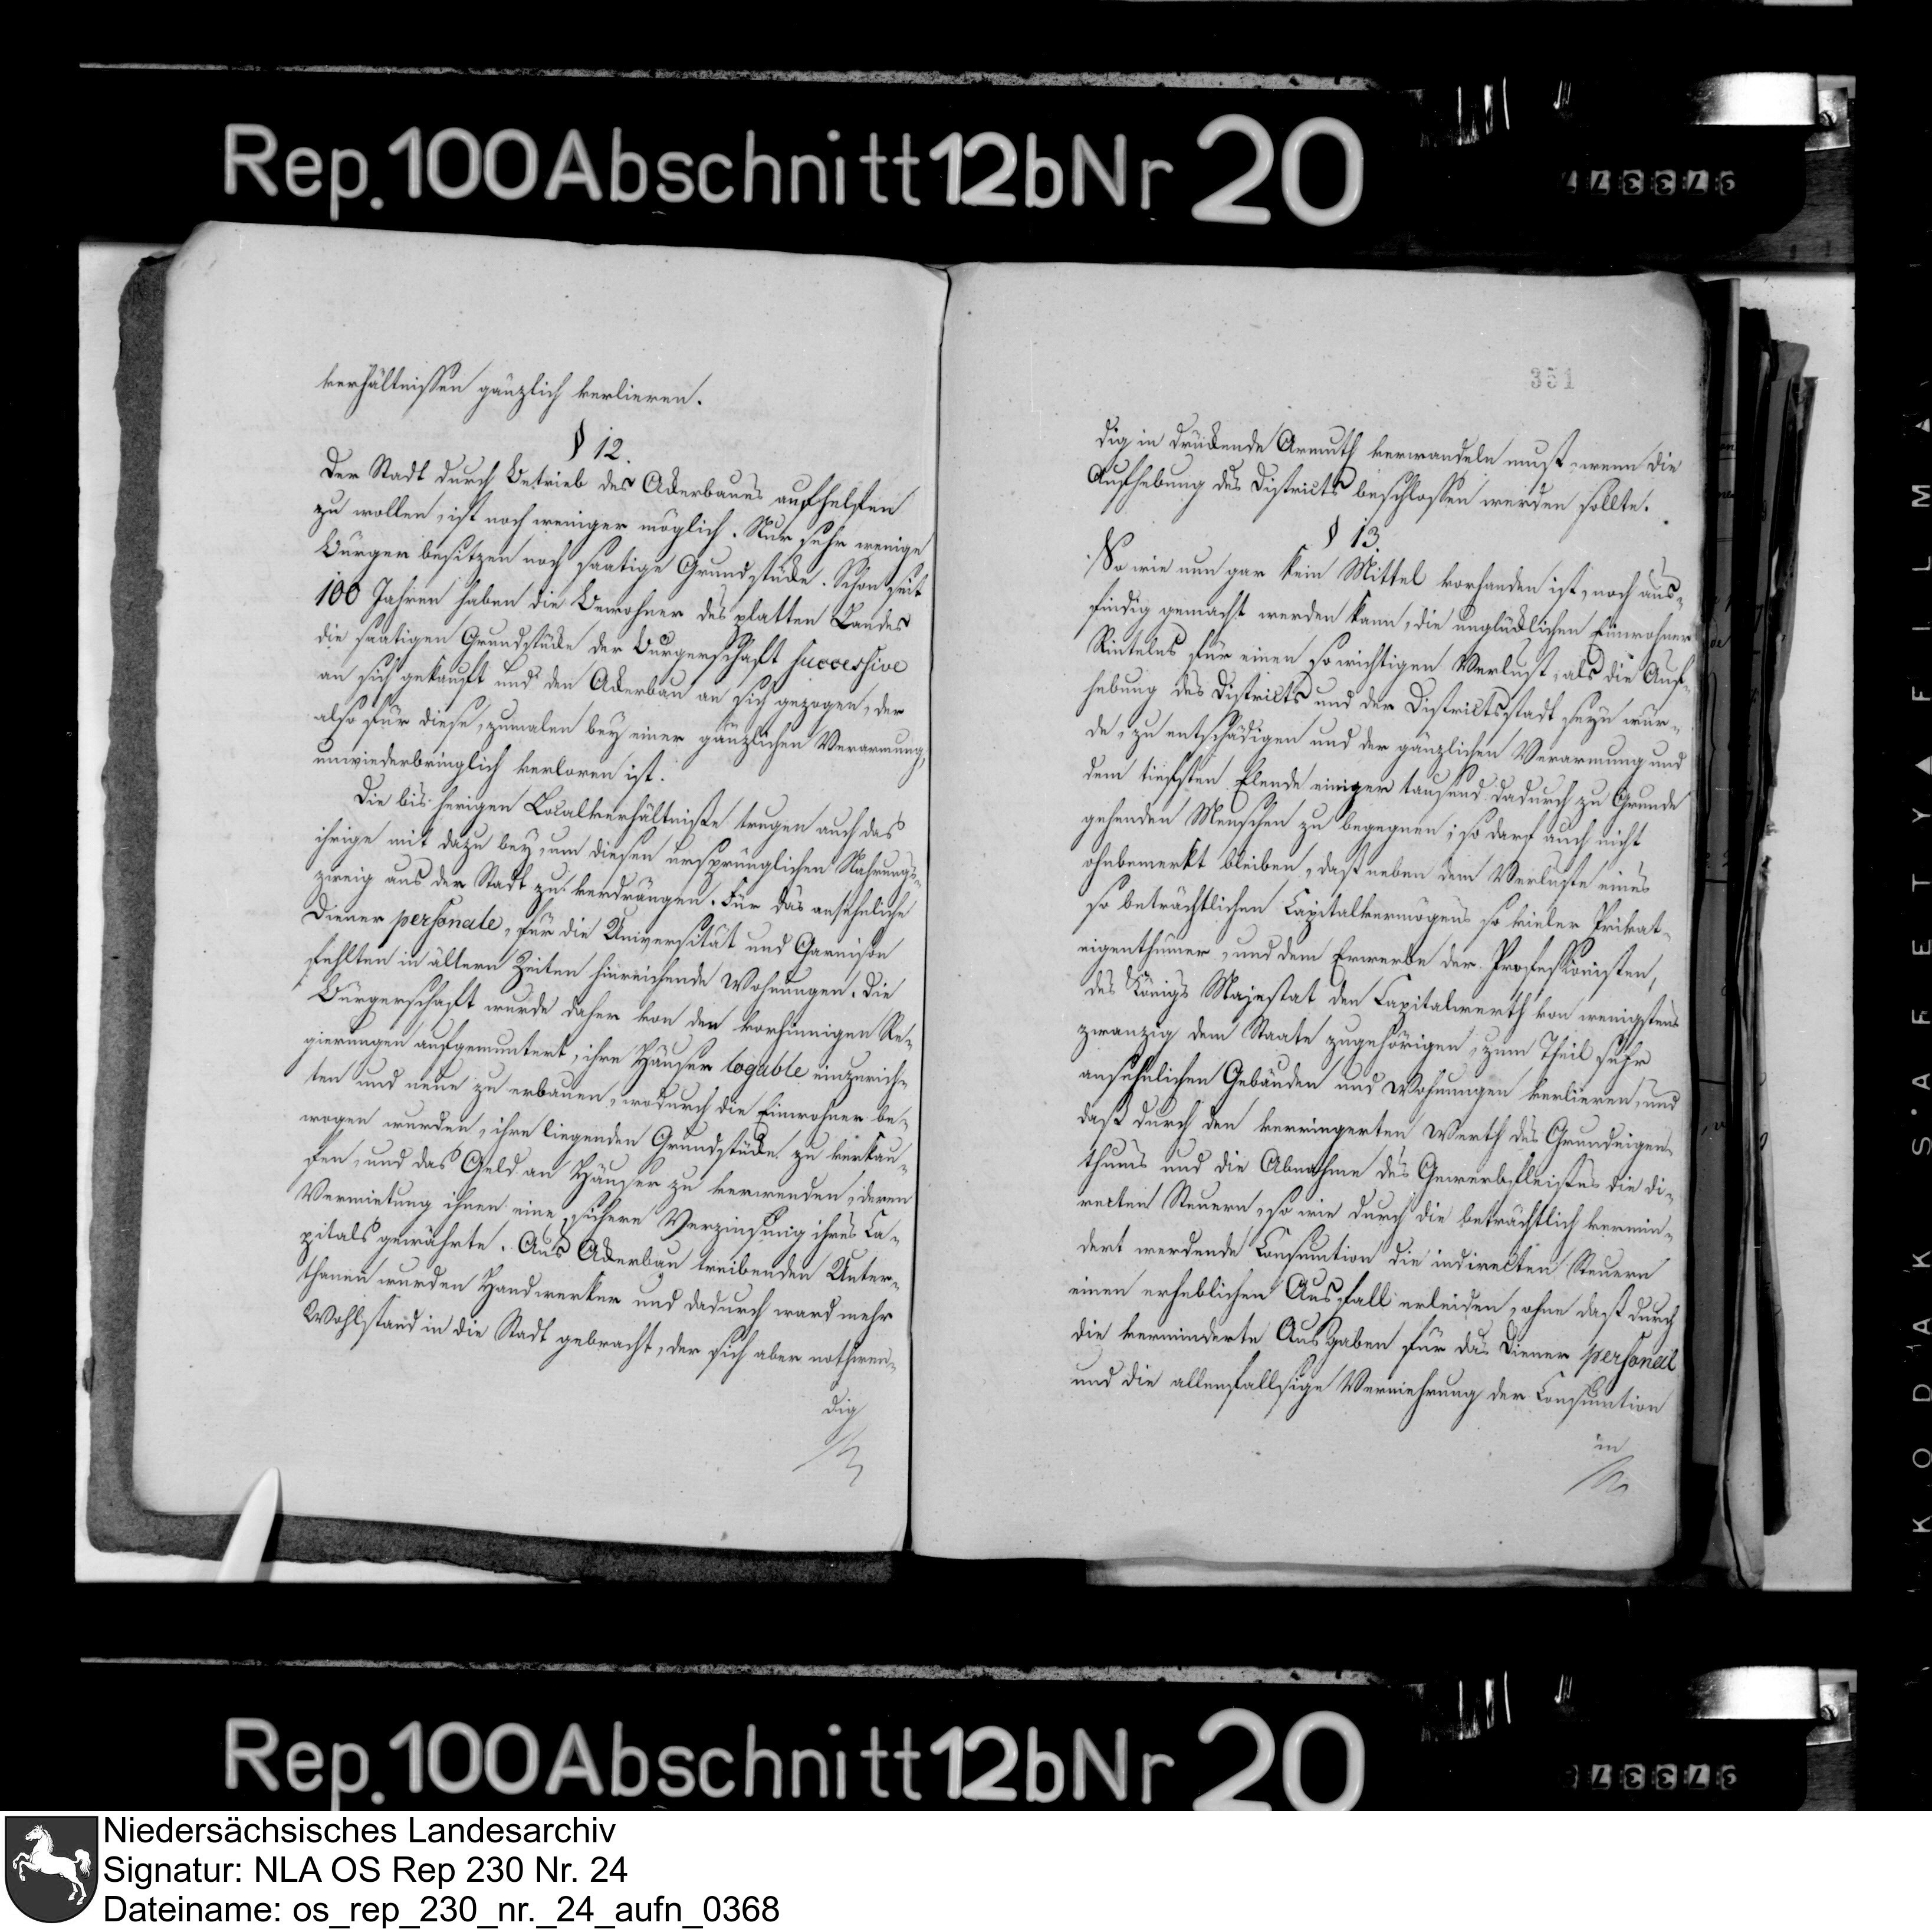 Rep. 100 Abschnitt 12b Nr 20
verhältnissen gänzlich verlieren.
§ 12.
Der Stadt durch Betrieb des Ackerbaues aufhelfen
zu wollen, ist noch weniger möglich. Nur sehr wenige
Bürger besitzen noch saatige Grundstücke. Schon seit
100 Jahren haben die Bewohner des platten Landes
die saatigen Grundstücke der Bürgerschaft successive
an sich gekauft und den Ackerbau an sich gezogen, der
also für diese, zumalen bey einer gänzlichen Verarmung,
unwiederbringlich verloren ist.
Die bisherigen Localverhältniße trugen auch das
ihrige mit dazu bey, um diesen ursprünglichen Nahrungs-
zweig aus der Stadt zu verdrängen. Für das ansehnliche
Diener personale, für die Universität und Garnison
fehlten in ältern Zeiten hinreichende Wohnungen. Die
Bürgerschaft wurde daher von den vorhinnigen Re-
gierungen aufgemuntert, ihre Häuser logable einzurich-
ten und neue zu erbauen, wodurch die Einwohner be-
wogen wurden, ihre liegenden Grundstücke zu verkau-
fen, und das Geld an Häuser zu verwenden, deren
Vermietung ihnen eine sichere Verzinsung ihres Ca-
pitals gewährte. Aus Ackerbau treibenden Unter-
thanen wurden Handwerker und dadurch ward mehr
Wohlstand in die Stadt gebracht, der sich aber nothwen-
dig
351
dig in drückende Armuth verwandeln must, wenn die
Aufhebung des Districts beschlossen werden sollte.
§ 13.
So wie nun gar kein Mittel vorhanden ist, noch aus-
findig gemacht werden kann, die unglücklichen Einwohner
Rintelns für einen so wichtigen Verlust, als die Auf-
hebung des Districts und der Districtsstadt seyn wür-
de, zu entschädigen und der gänzlichen Verarmung und
dem tiefsten Elende einiger tausend dadurch zu Grunde
gehenden Menschen zu begegnen; so darf auch nicht
ohnbemerkt bleiben, daß neben dem Verluste eines
so beträchtlichen Capitalvermögens so vieler Privat-
eigenthümer, und dem Erwerbe der Professionisten,
des Königs Majestat den Capitalwerth von wenigstens
zwanzig dem Staate zugehörigen, zum Theil sehr
ansehnlichen Gebäuden und Wohnungen verlieren, und
daß durch den verringerten Werth des Grundeigen-
thums und die Abnahme des Gewerbfleißes die di-
recten Steuern, so wie durch die beträchtlich vermin-
dert werdende Consumtion die indirecten Steuern
einen erheblichen Ausfall erleiden, ohne daß durch
die verminderte Ausgaben für das Diener personal
und die allenfallsige Vermehrung der Consumtion
in
KODAK SAFETY FILM
Rep. 100 Abschnitt 12b Nr 20
Niedersächsisches Landesarchiv
Signatur: NLA OS Rep 230 Nr. 24
Dateiname: os_rep_230_nr._24_aufn_0368